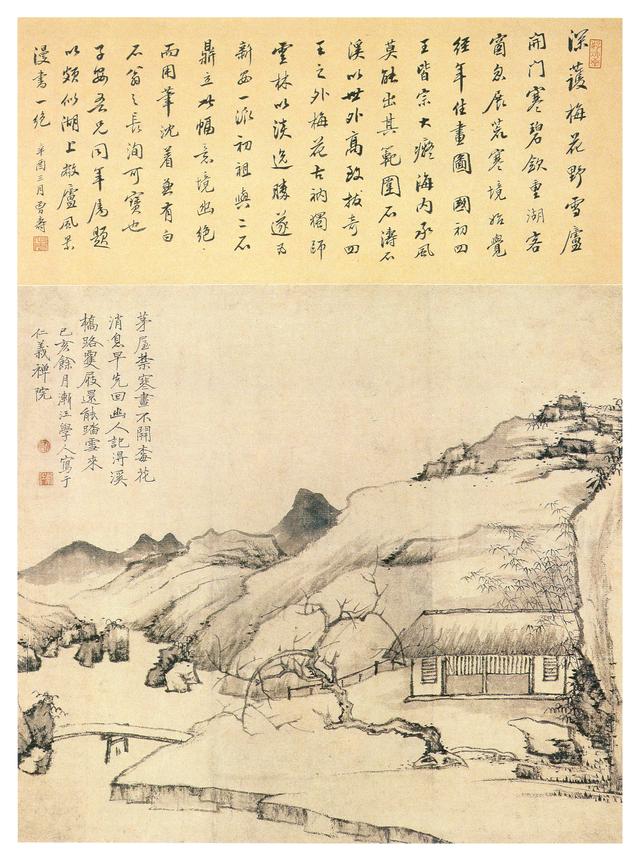 深護梅花野雪廬
開門寒碧欲重湖客
窗忽展荒寒境始覺
經年住畫圖 國初四
王皆宗大癡海內承風
莫能出其範圍石濤石
溪以世外高致拔奇四
王之外梅花古衲獨師
雲林以淡逸勝遂為
新安一派初祖與二石
鼎立此幅意境幽絕
而用筆沈着兼有白
石翁之長洵可寶也
子安吾兄同年屬題
以頗似湖上敝廬風景
漫書一絕 辛酉三月曾壽
茅屋禁寒晝不開梅花
消息早先回幽人記得溪
橋路屐還能踏雪來
己亥餘月漸江學人寫于
仁義禪院